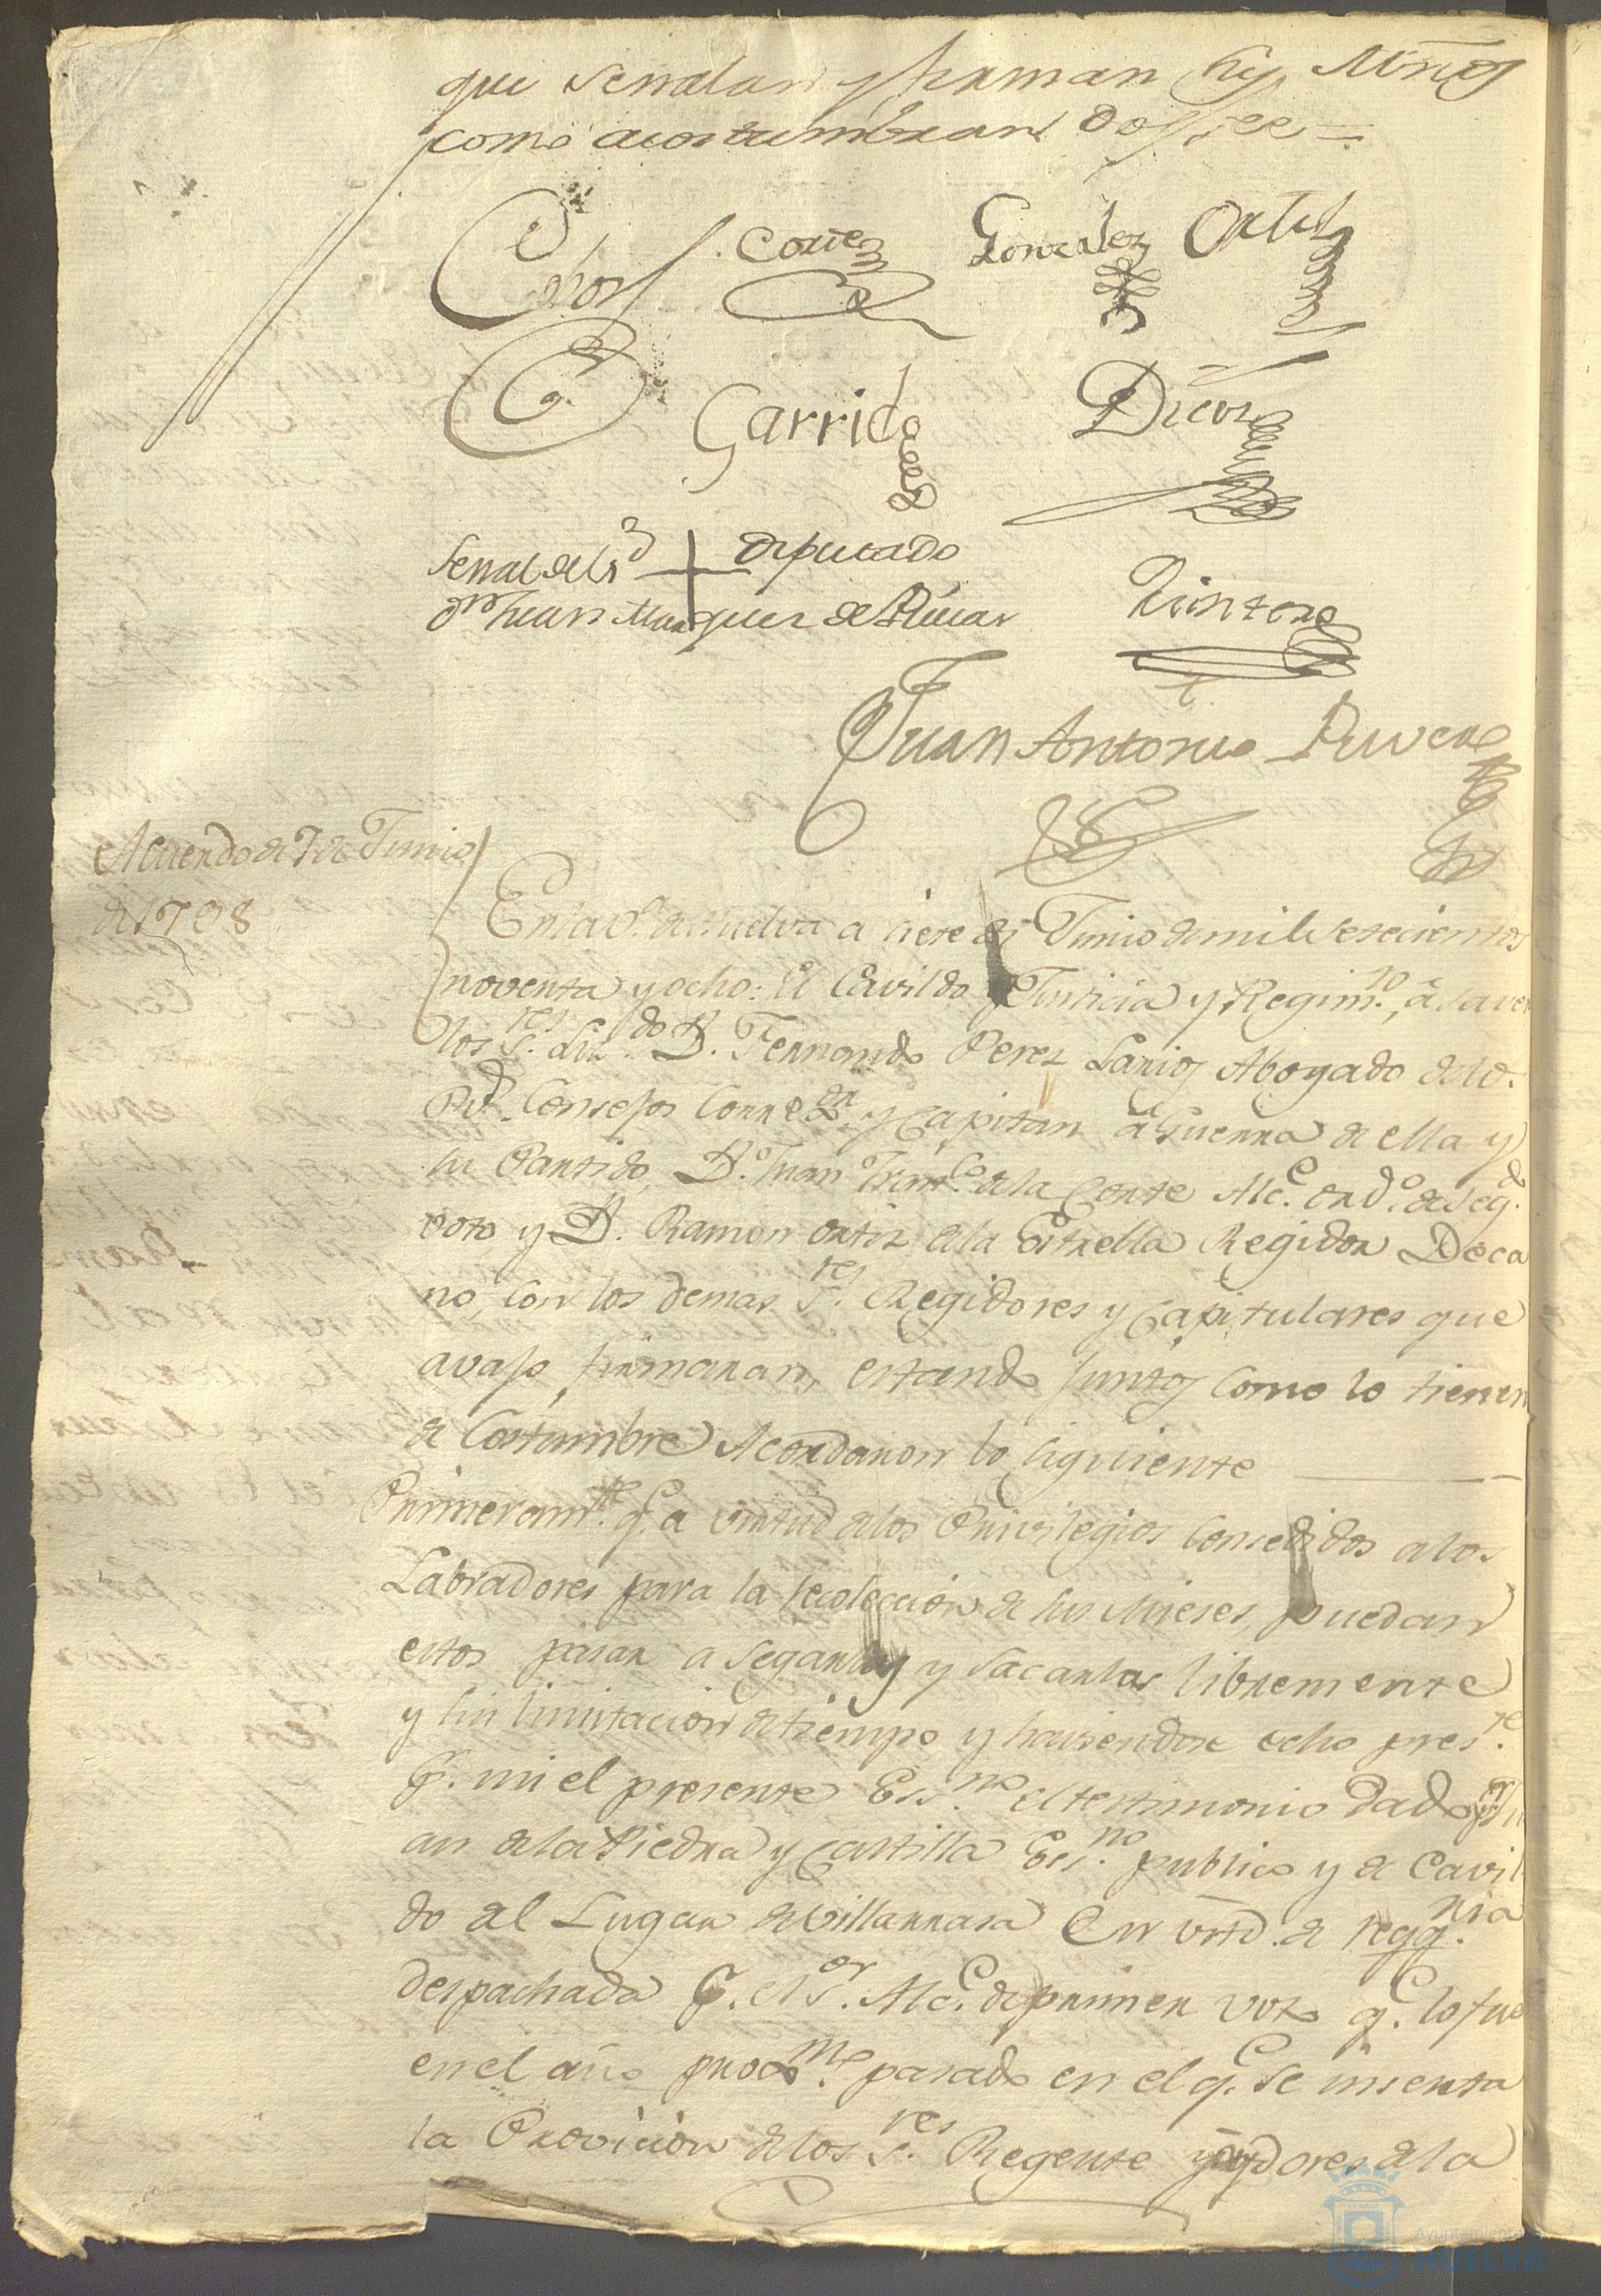 que señalan y firman sus Mrds
como acostumbran doy fee =
Corte
Gonzalez
Ortiz
Garrido
Dicar
Señal del Sr + Diputado
Dn Juan Marquez de Alucar
Quintero
Juan Antonio Rivera
Acuerdo de 7 de Junio
de 1798
En la va. de Huelva a siete de Junio de mil setecientos
noventa y ocho: El Cavildo Justicia y Regimto., â saver
los Sres. Licdo. Dn. Fernando Perez Larios Abogado de los
Rs. Consejos Corregor. y Capitan â Guerra de ella y
su Partido, Dn. Juan Franco. de la Corte Alce. ordo. de segdo.
voto y Dn. Ramon Ortiz de la Estrella Regidor Deca
no, con los demas Sres. Regidores y Capitulares que
avajo firmaran, estando juntos como lo tienen
de Costumbre Acordaron lo siguiente
Primeramte. qe. a virtud de los Privilegios consedidos a los
Labradores para la recoleccion de sus Mieses, puedan
estos pasar a segarlas y sacarlas libremente
y sin limitacion de tiempo, y haviendose echo preste.
pr. mi el presente Essno. el testimonio dado pr. Ju
an de la Piedra y Castilla Essno. publico y de Cavil
do del Lugar de Villarrasa en virtd. de reqqria.
despachada pr. el Sor. Alce. de primer voto qe. lo fue
en el año proxme. pasado en el qe. se inserta
la Provicion de los Sres. Regente y oydores de la
Ayuntamiento de
HUELVA